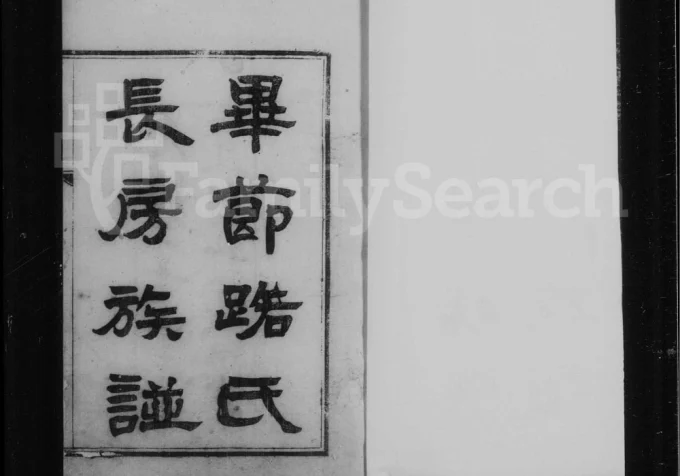 畢節路氏
長房族譜
FamilySearch